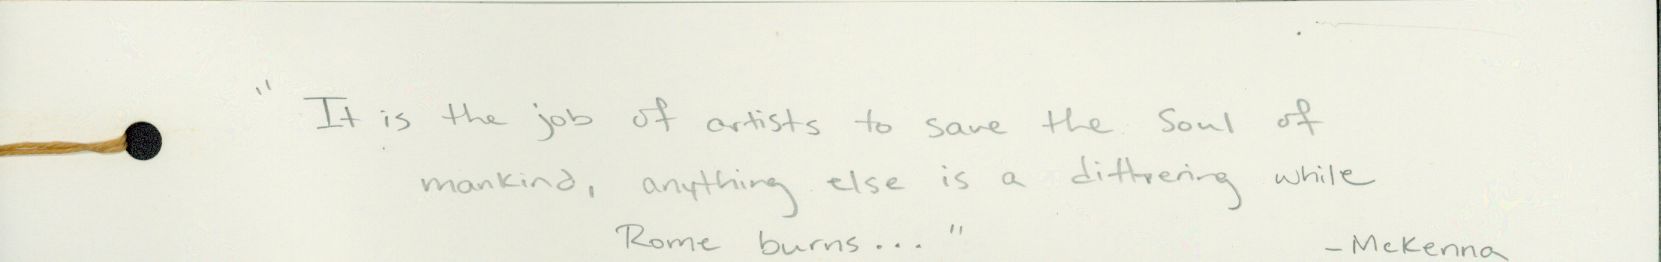 "It is the job of artists to save the Soul of
mankind, anything else is a dithering while
Rome burns..."
-McKenna